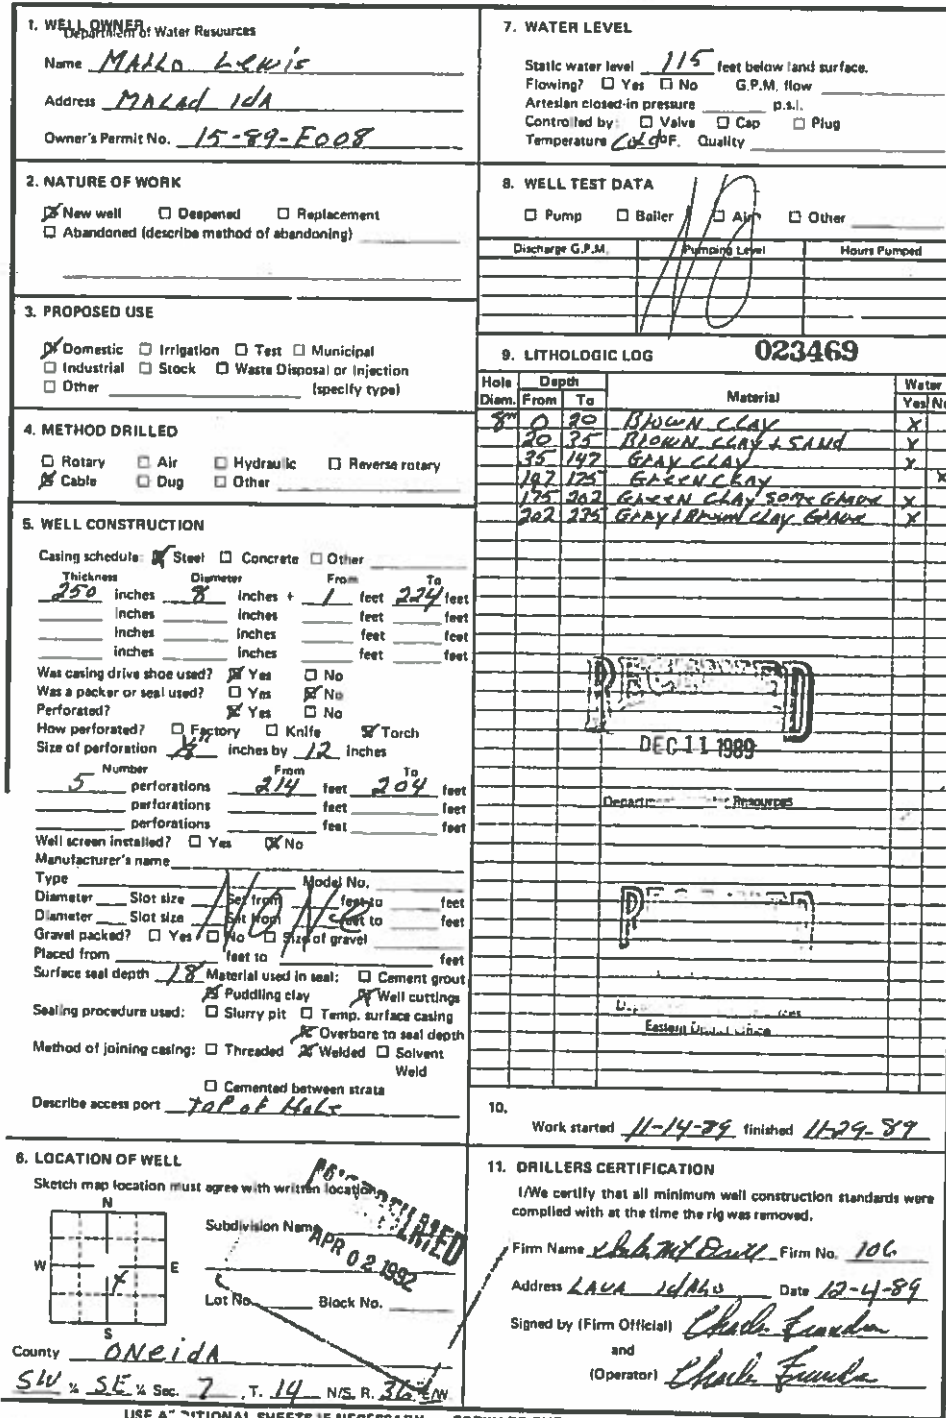 1. WELL OWNER
Department of Water Resources
Name Mallo Lewis
Address Malad IdA
Owner's Permit No. 15-89-E008
2. NATURE OF WORK
New well Deepened Replacement
Abandoned (describe method of abandoning)
3. PROPOSED USE
Domestic Irrigation Test Municipal
Industrial Stock Waste Disposal or Injection
Other (specify type)
4. METHOD DRILLED
Rotary Air Hydraulic Reverse rotary
Cable Dug Other
5. WELL CONSTRUCTION
Casing schedule: Steel Concrete Other
Thickness Diameter From To
250 inches 8 inches + 1 feet 224 feet
inches inches feet feet
inches inches feet feet
inches inches feet feet
Was casing drive shoe used? Yes No
Was a packer or seal used? Yes No
Perforated? Yes No
How perforated? Factory Knife Torch
Size of perforation inches by 12 inches
Number From To
5 perforations 214 feet 204 feet
perforations feet feet
perforations feet feet
Well screen installed? Yes No
Manufacturer's name
Type Model No.
Diameter Slot size Set from feet to feet
Diameter Slot size Set from feet to feet
Gravel packed? Yes No Size of gravel
Placed from feet to feet
Surface seal depth 18 Material used in seal: Cement grout
Puddling clay Well cuttings
Sealing procedure used: Slurry pit Temp. surface casing
Overbore to seal depth
Method of joining casing: Threaded Welded Solvent
Weld
Cemented between strata
Describe access port Top of Hole
6. LOCATION OF WELL
Sketch map location must agree with written location.
N
W E
S
Subdivision Name
APR 02 1992
Lot No. Block No.
County ONeidA
SW ¼ SE ¼ Sec. 7, T. 14 N/S, R. 36 E/W
7. WATER LEVEL
Static water level 115 feet below land surface.
Flowing? Yes No G.P.M. flow
Artesian closed-in pressure p.s.i.
Controlled by: Valve Cap Plug
Temperature Cold °F. Quality
8. WELL TEST DATA
Pump Bailer Air Other
Discharge G.P.M. Pumping Level Hours Pumped
9. LITHOLOGIC LOG 023469
Hole Depth Material Water
Diam. From To Yes No
8" 0 20 Brown Clay X
20 35 Brown Clay & Sand X
35 147 Gray Clay X
147 175 Green Clay X
175 202 Green Clay Some Gravel X
202 235 Gray & Brown Clay Gravel X
DEC 11 1989
Department Resources
Eastern District Office
10.
Work started 11-14-89 finished 11-29-89
11. DRILLERS CERTIFICATION
I/We certify that all minimum well construction standards were
complied with at the time the rig was removed.
Firm Name Firm No. 106
Address LAVA IdAho Date 12-4-89
Signed by (Firm Official) Charles
and
(Operator) Charles